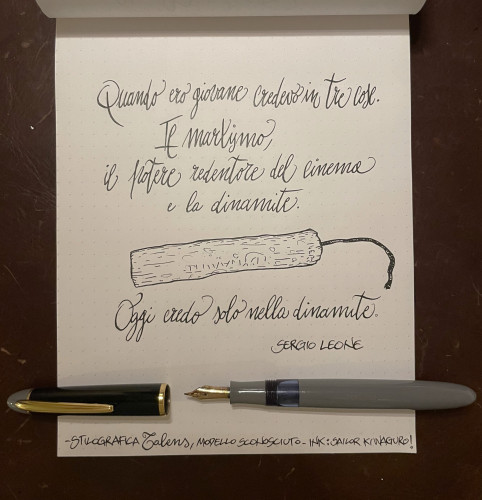 Quando ero giovane credevo in tre cose.
Il marxismo,
il potere redentore del cinema
e la dinamite.
DYNAMITE
Oggi credo solo nella dinamite.
SERGIO LEONE
-STILOGRAFICA Talens, MODELLO SCONOSCIUTO - INK: SAILOR KIWAGURO!